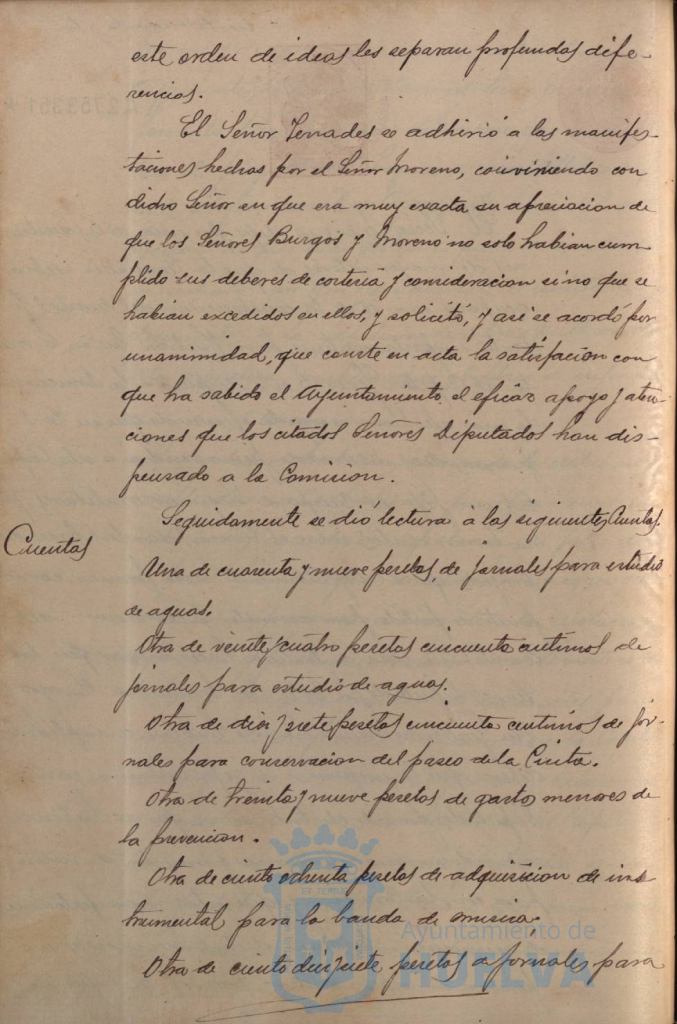 este orden de ideas les separan profundas dife-
rencias.
El Señor Terrades se adhirió a las manifes-
taciones hechas por el Señor Moreno, conviniendo con
dicho Señor en que era muy exacta su apreciacion de
que los Señores Burgos y Moreno no solo habian cum
plido sus deberes de cortesia y consideracion sino que se
habian excedidos en ellos, y solicitó, y asi se acordó por
unanimidad, que conste en acta la satisfacion con
que ha sabido el Ayuntamiento el eficaz apoyo y aten-
ciones que los citados Señores Diputados han dis-
pensado a la Comision.
Seguidamente se dió lectura á las siguientes Cuentas.
Cuentas
Una de cuarenta y nueve pesetas, de jornales para estudio
de aguas.
Otra de veinte y cuatro pesetas cincuenta centimos de
jornales para estudio de aguas.
Otra de diez y siete pesetas cincuenta centimos de jor-
nales para conservacion del paseo de la Cinta.
Otra de treinta y nueve pesetas de gastos menores de
la prevencion.
Otra de ciento ochenta pesetas de adquisicion de ins
trumental para la banda de musica.
Otra de ciento diez y siete pesetas a jornales para
Ayuntamiento de
HUELVA